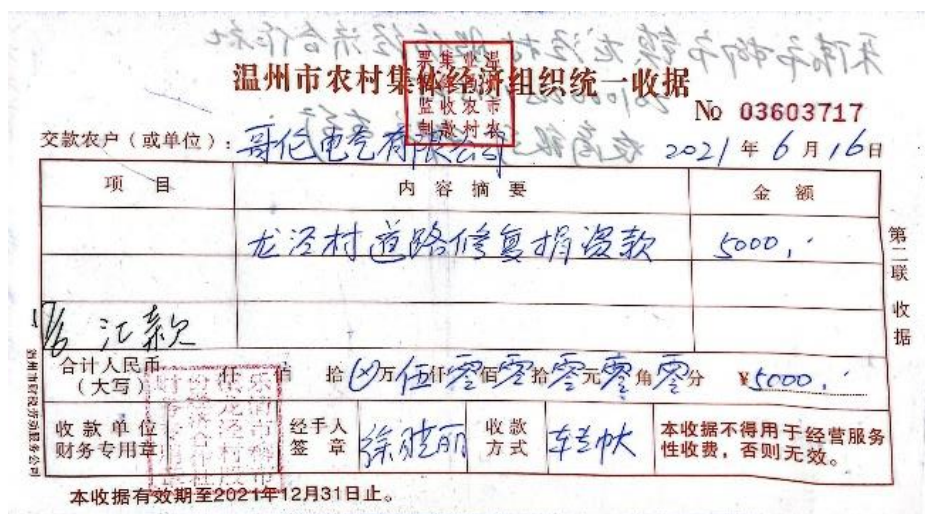 温州市农村集体经济组织统一收据
No 03603717
交款农户（或单位）：哥伦电气有限公司 2021 年 6 月 16 日
项 目 内 容 摘 要 金 额
龙泾村道路修复捐资款 5000.-
汇款
合计人民币（大写） 仟 佰 拾 万 伍仟 零佰 零拾 零元 零角 零分 ¥5000.-
收款单位财务专用章 经手人签章 徐晓丽 收款方式 转帐 本收据不得用于经营服务性收费，否则无效。
本收据有效期至2021年12月31日止。
第二联 收据
温州市财税劳动服务公司